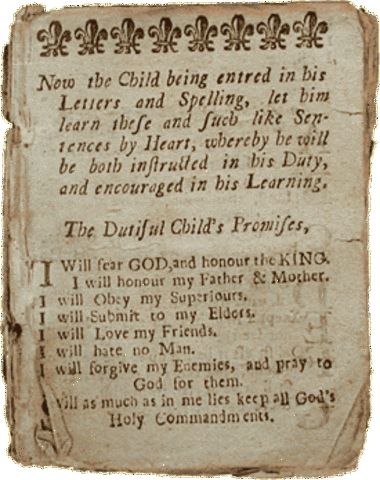 Now the Child being entred in his
Letters and Spelling, let him
learn theſe and ſuch like Sen-
tences by Heart, whereby he will
be both inſtructed in his Duty,
and encouraged in his Learning.
The Dutiful Child's Promiſes,
I Will fear GOD, and honour the KING.
I will honour my Father & Mother.
I will Obey my Superiours.
I will Submit to my Elders.
I will Love my Friends.
I will hate no Man.
I will forgive my Enemies, and pray to
God for them.
will as much as in me lies keep all God's
Holy Commandments.